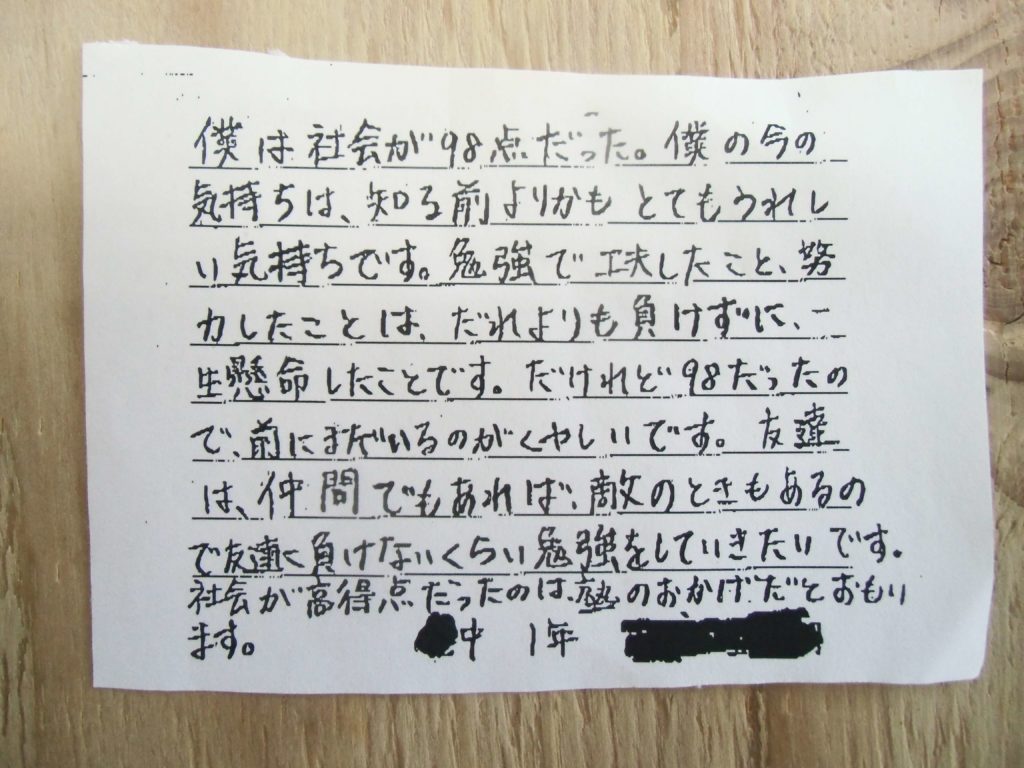 僕は社会が98点だった。僕の今の
気持ちは、知る前よりかもとてもうれし
い気持ちです。勉強で工夫したこと、努
力したことは、だれよりも負けずに、一
生懸命したことです。だけれど98だったの
で、前にまだいるのがくやしいです。友達
は、仲間でもあれば、敵のときもあるの
で友達に負けないくらい勉強をしていきたいです。
社会が高得点だったのは、塾のおかげだとおもい
ます。 中 1年